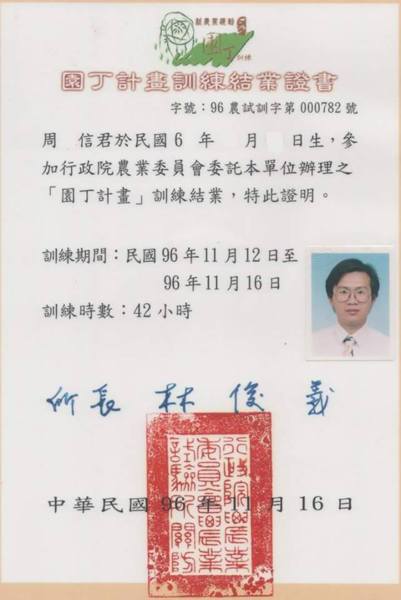 園丁
訓練
園丁計畫訓練結業證書
字號：96農試訓字第000782號
周 信君於民國6 年 月 日生，參
加行政院農業委員會委託本單位辦理之
「園丁計畫」訓練結業，特此證明。
訓練期間：民國96年11月12日至
96年11月16日
訓練時數：42小時
所長 林俊義
行政院農業
委員會農業
試驗所關防
中華民國 96 年 11 月 16 日